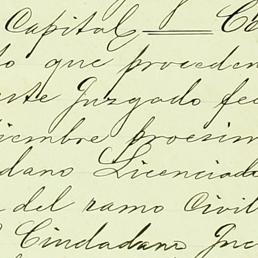 Capital
to que proceden
Juzgado fe
iembre procsim
dano Licenciad
del ramo Civil
Ciudadano